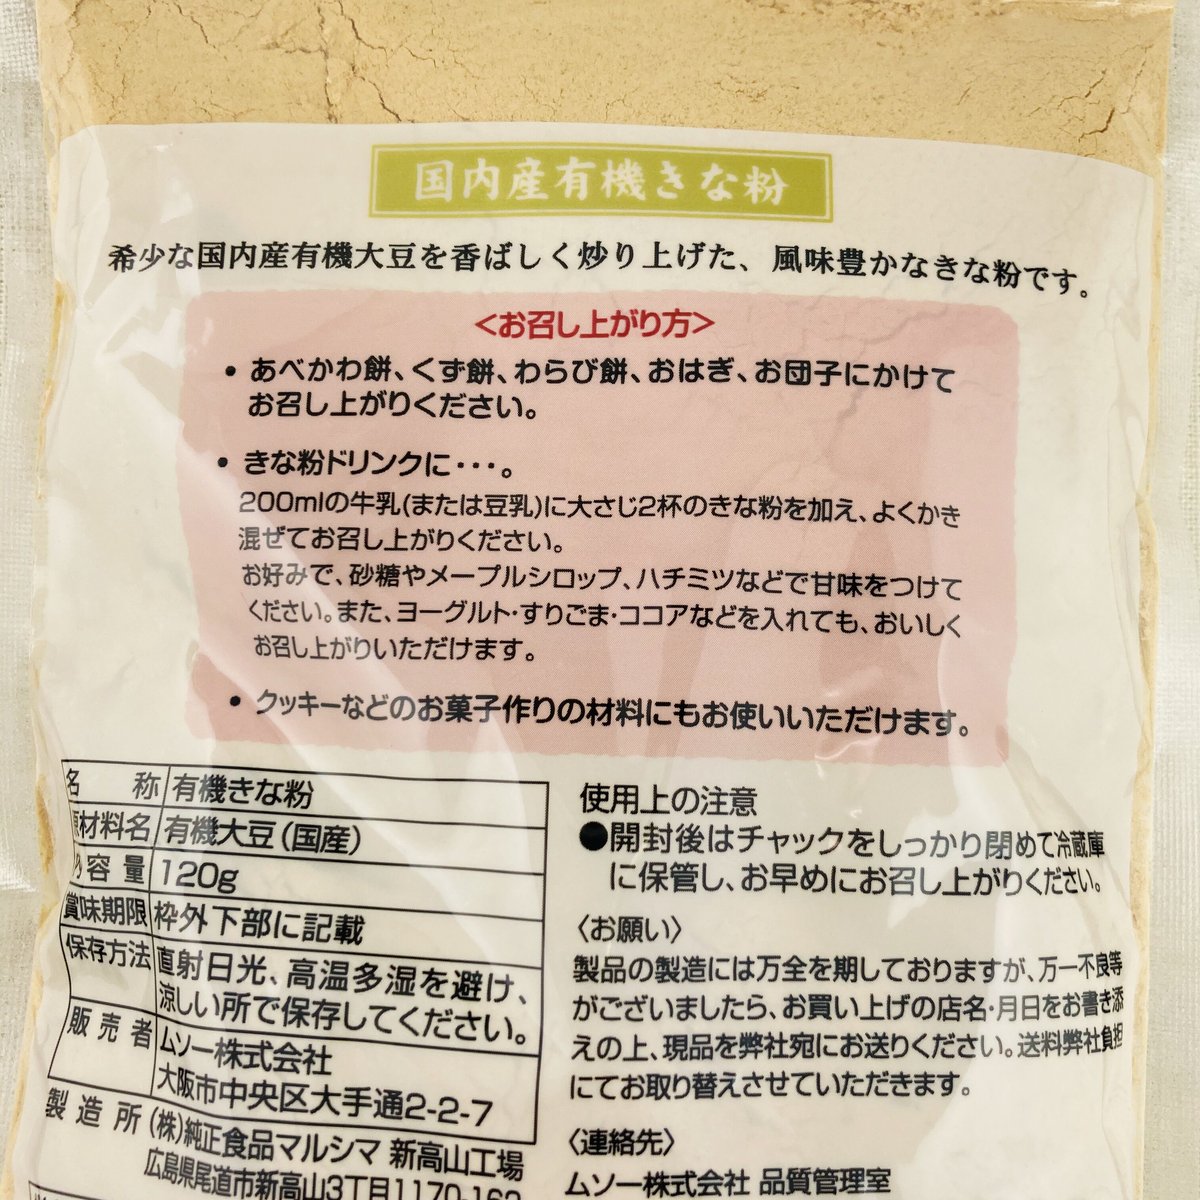 国内産有機きな粉
希少な国内産有機大豆を香ばしく炒り上げた、風味豊かなきな粉です。
<お召し上がり方>
・あべかわ餅、くず餅、わらび餅、おはぎ、お団子にかけて
お召し上がりください。
・きな粉ドリンクに・・・。
200mlの牛乳(または豆乳)に大さじ2杯のきな粉を加え、よくかき
混ぜてお召し上がりください。
お好みで、砂糖やメープルシロップ、ハチミツなどで甘味をつけて
ください。また、ヨーグルト・すりごま・ココアなどを入れても、おいしく
お召し上がりいただけます。
・クッキーなどのお菓子作りの材料にもお使いいただけます。
名称 有機きな粉
原材料名 有機大豆(国産)
内容量 120g
賞味期限 枠外下部に記載
保存方法 直射日光、高温多湿を避け、
涼しい所で保存してください。
販売者 ムソー株式会社
大阪市中央区大手通2-2-7
製造所 (株)純正食品マルシマ 新高山工場
広島県尾道市新高山3丁目1170-162
使用上の注意
●開封後はチャックをしっかり閉めて冷蔵庫
に保管し、お早めにお召し上がりください。
〈お願い〉
製品の製造には万全を期しておりますが、万一不良等
がございましたら、お買い上げの店名・月日をお書き添
えの上、現品を弊社宛にお送りください。送料弊社負担
にてお取り替えさせていただきます。
〈連絡先〉
ムソー株式会社 品質管理室